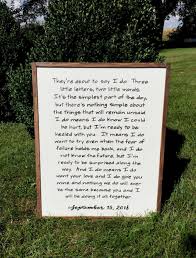 They're about to say I do. Three
little letters, two little words.
It's the simplest part of the day,
but there's nothing simple about
the things that will remain unsaid
I do means I do know I could
be hurt, but I'm ready to be
healed with you. It means I do
want to try even when the fear of
failure holds me back, and I do
not know the future, but I'm
ready to be surprised along the
way. And I do means I do
want your love and I do give you
mine and nothing we do will ever
be the same because you and I
will be doing it all together.
September 15, 2018